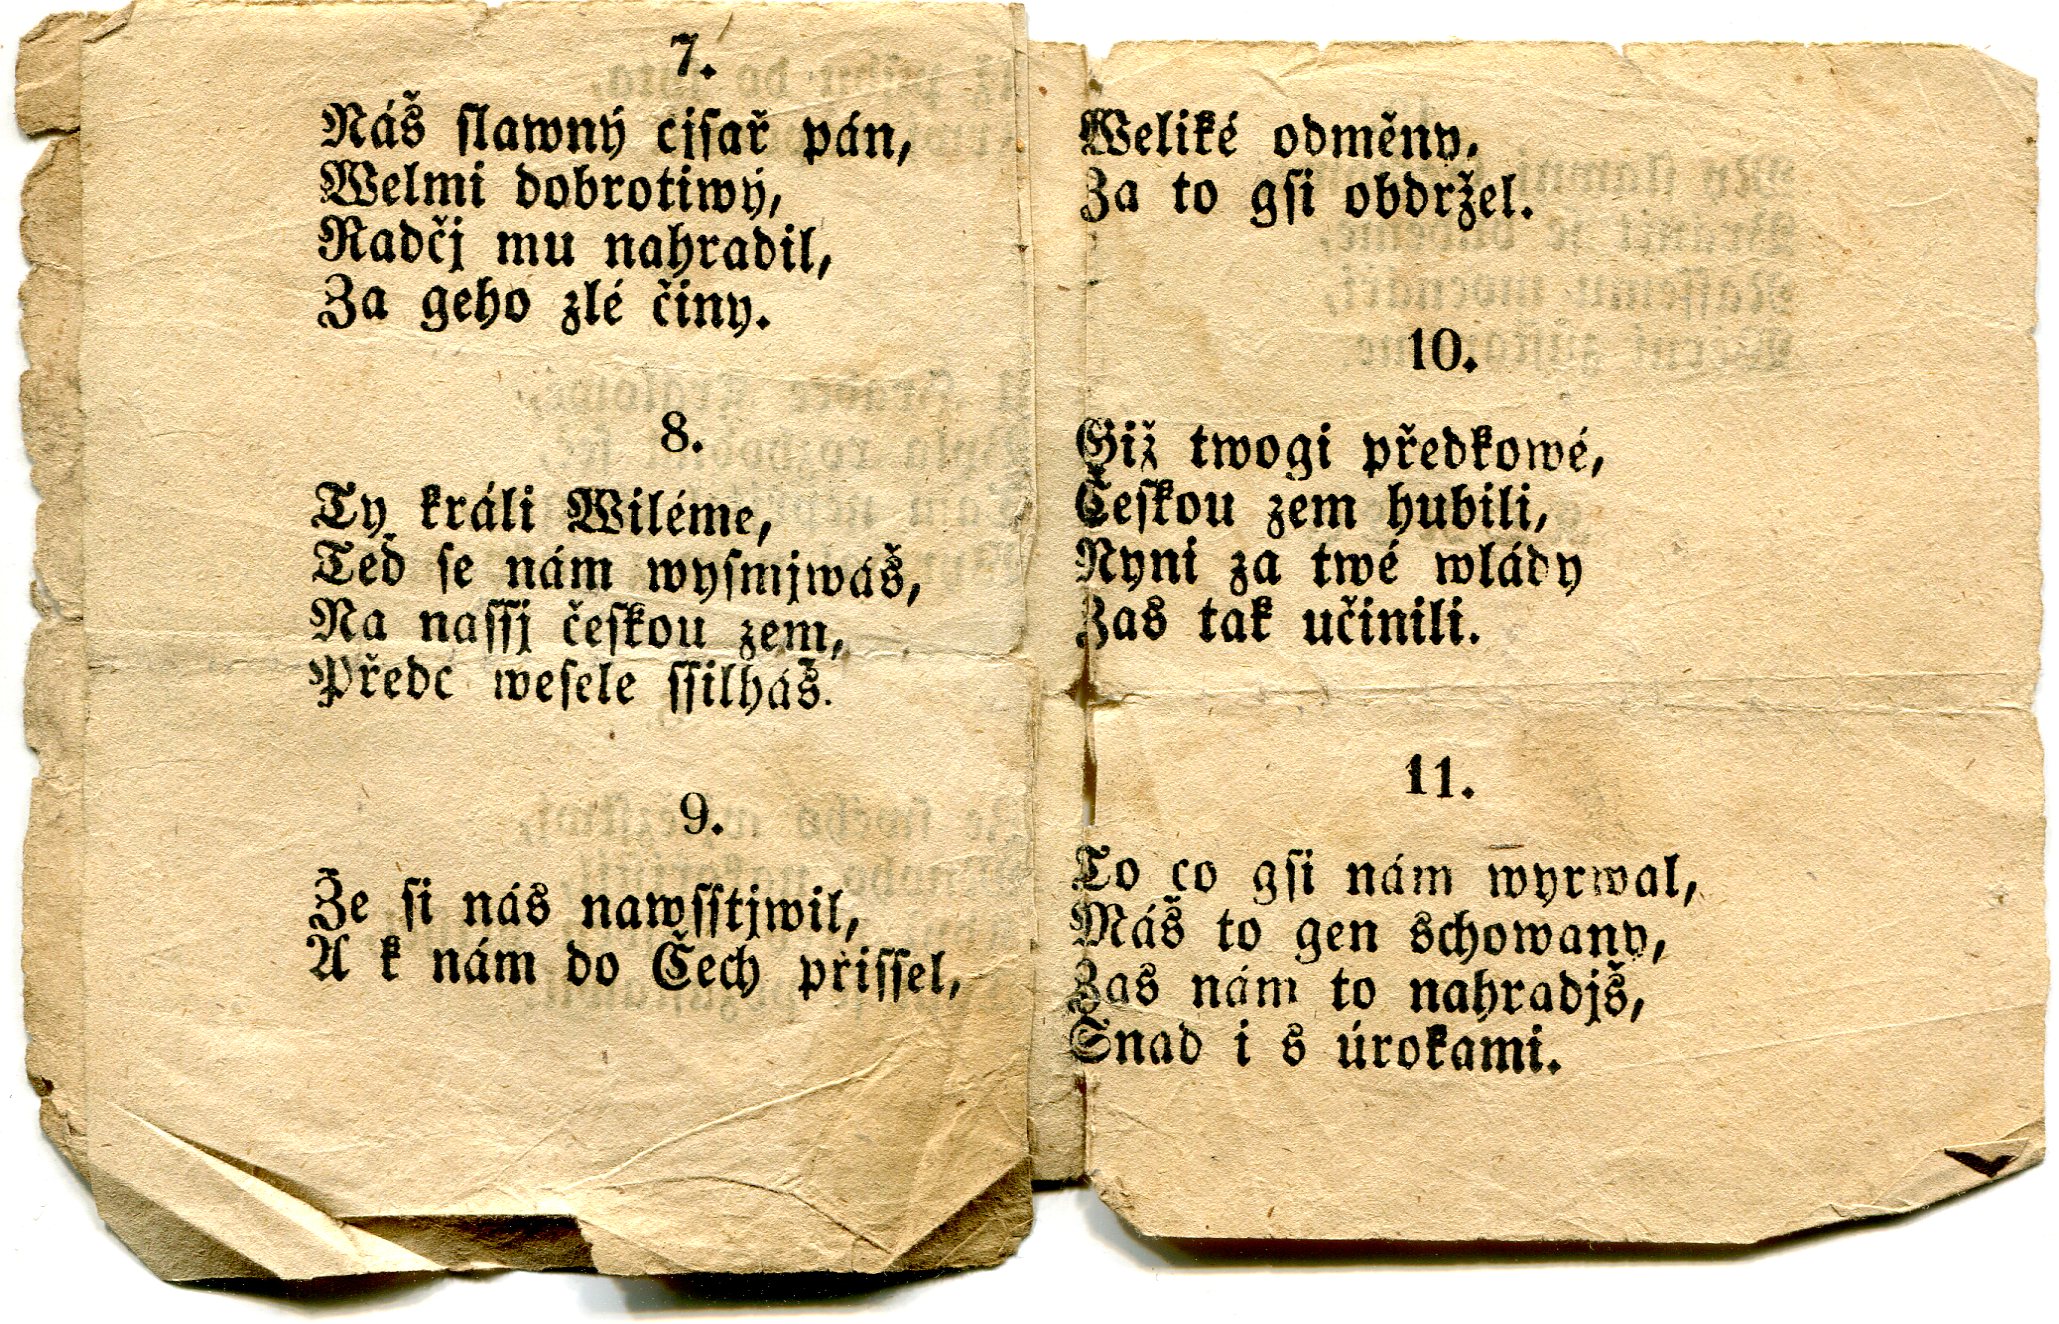 7.
Náš slawný cjsař pán,
Welmi dobrotiwý,
Radčj mu nahradil,
Za geho zlé činy.
8.
Ty králi Wiléme,
Teď se nám wysmjwáš,
Na nassj českou zem,
Předc wesele ssilháš.
9.
Že si nás nawsstjwil,
A k nám do Čech přissel,
Weliké odměny,
Za to gsi obdržel.
10.
Giž twogi předkowé,
Českou zem hubili,
Nyni za twé wlády
Zas tak učinili.
11.
To co gsi nám wyrwal,
Máš to gen schowany,
Zas nám to nahradjš,
Snad i s úrokami.